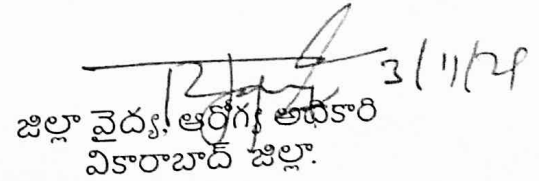 3/11/21
జిల్లా వైద్య, ఆరోగ్య అధికారి
వికారాబాద్ జిల్లా.